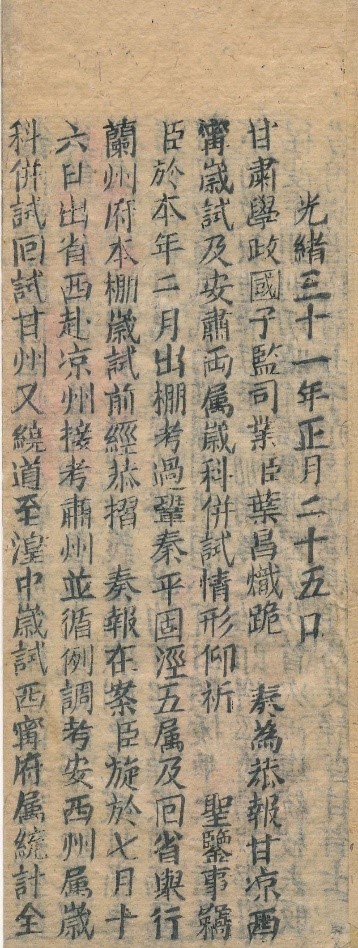 光緒三十一年正月二十五日
甘肅學政國子監司業臣葉昌熾跪　奏為恭報甘凉西
甯歲試及安肅兩属歲科併試情形仰祈　聖鑒事竊
臣於本年二月出棚考過鞏秦平固涇五属及囘省舉行
蘭州府本棚歲試前經恭摺　奏報在案臣旋於七月十
六日出省西赴凉州接考肅州並循例調考安西州属歲
科併試囘試甘州又繞道至湟中歲試西甯府属統計全